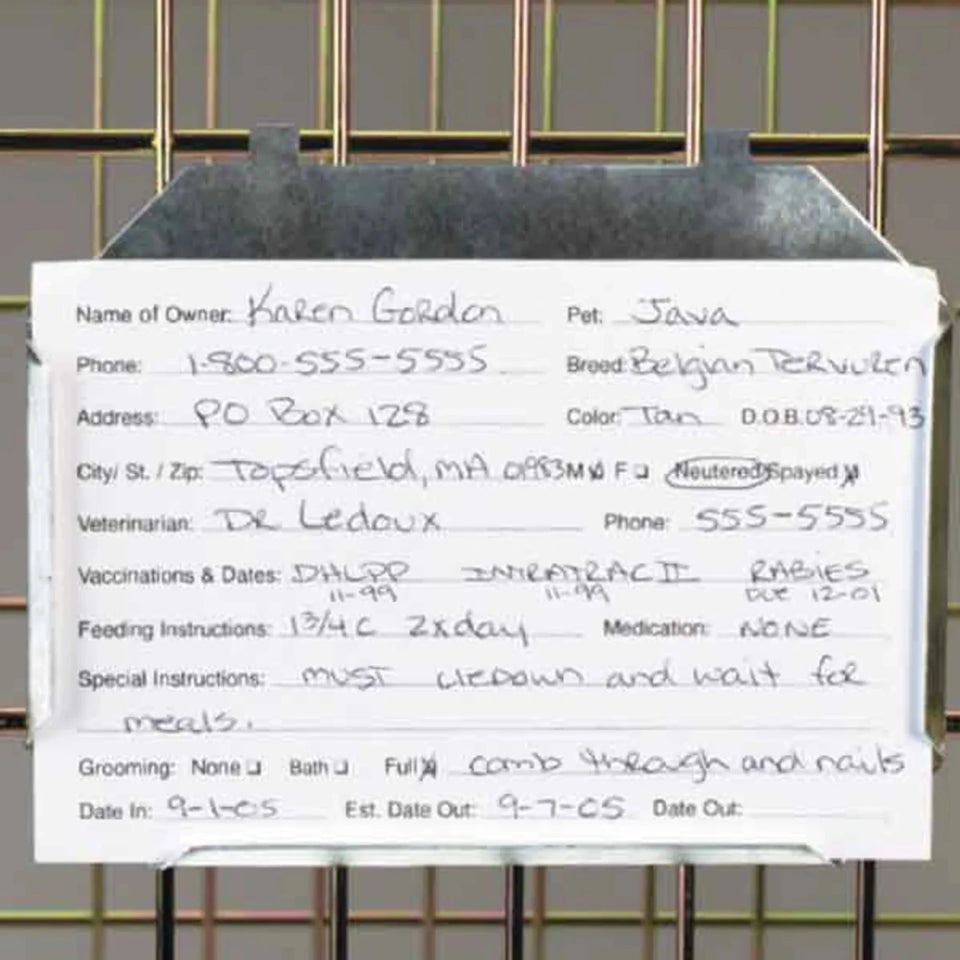 Name of Owner: Karen Gordon Pet: Java
Phone: 1-800-555-5555 Breed: Belgian Tervuren
Address: PO Box 128 Color: Tan D.O.B. 08-29-93
City/ St. / Zip: Topsfield, MA 0983 M ☒ F ☐ Neutered/Spayed ☒
Veterinarian: DR Ledoux Phone: 555-5555
Vaccinations & Dates: DHLPP INTRATRAC II RABIES
11-99 11-99 DUE 12-01
Feeding Instructions: 1 3/4 C 2xday Medication: NONE
Special Instructions: MUST lie down and wait for
meals.
Grooming: None ☐ Bath ☐ Full ☒ comb through and nails
Date In: 9-1-05 Est. Date Out: 9-7-05 Date Out: